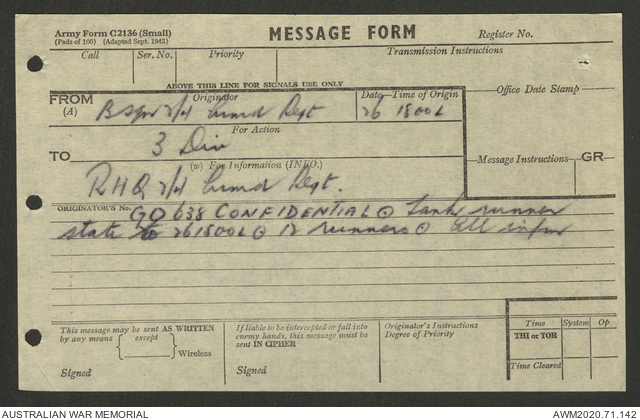 Army Form C2136 (Small)
(Pads of 100) (Adapted Sept. 1945)
MESSAGE FORM
Register No.
Call
Ser. No.
Priority
Transmission Instructions
ABOVE THIS LINE FOR SIGNALS USE ONLY
FROM
(A)
Originator
B Sqn 2/4 Armd Regt
Date-Time of Origin
26 1800L
Office Date Stamp
For Action
TO
3 Div
(w) For Information (INFO.)
RHQ 2/4 Armd Regt.
Message Instructions
GR
ORIGINATOR'S No.
GO 638 CONFIDENTIAL ⊙ Tank runner
state 261800L ⊙ 12 runners ⊙ All
This message may be sent AS WRITTEN
by any means except
Wireless
Signed
If liable to be intercepted or fall into
enemy hands, this message must be
sent IN CIPHER
Signed
Originator's Instructions
Degree of Priority
Time
System
Op
THI or TOR
Time Cleared
AUSTRALIAN WAR MEMORIAL
AWM2020.71.142